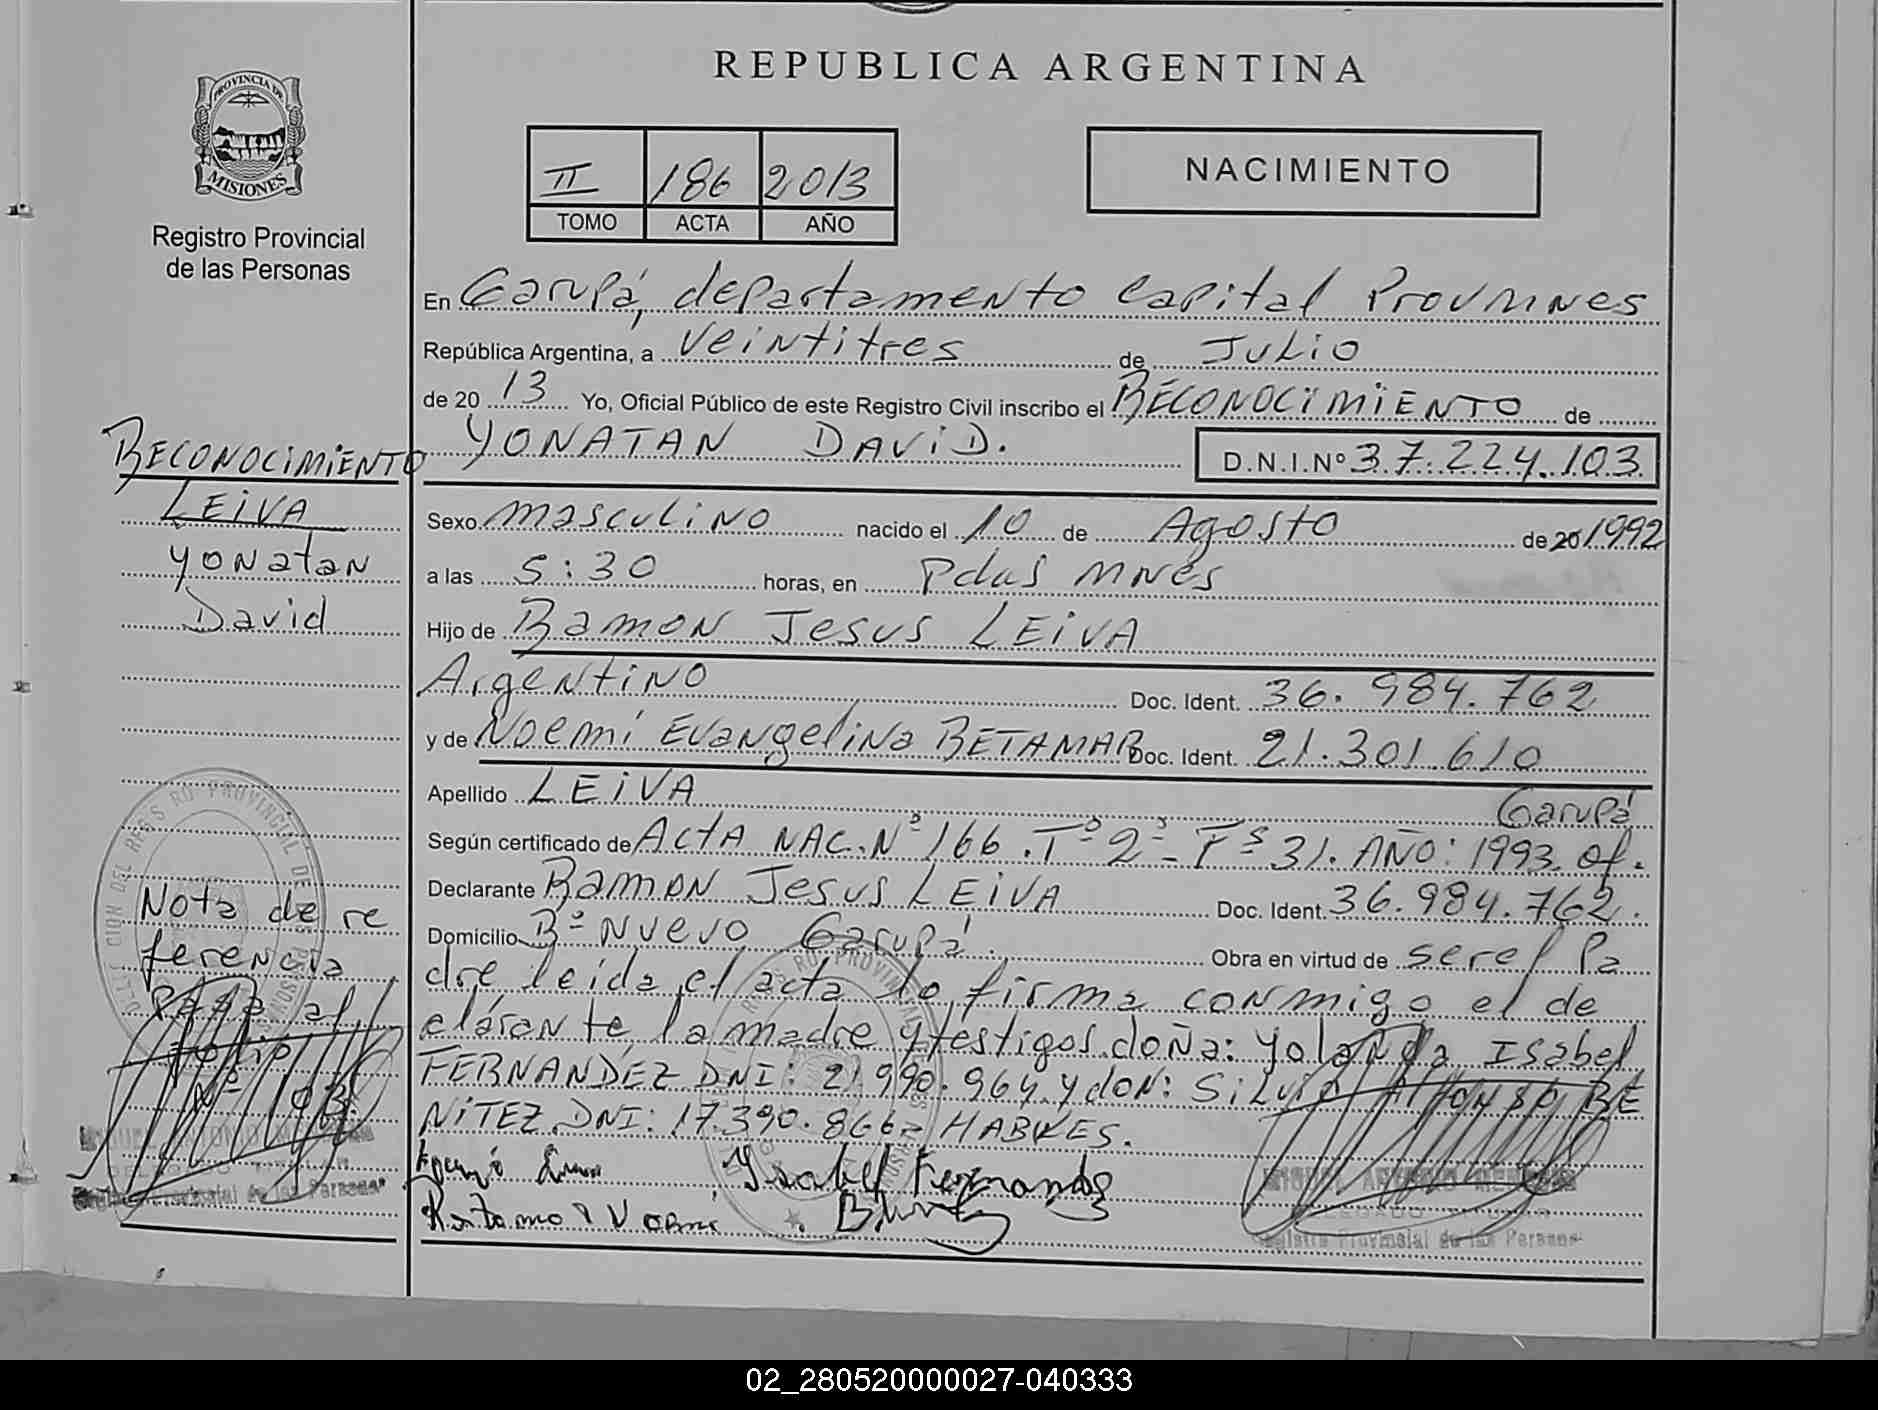 REPUBLICA ARGENTINA
PROVINCIA DE
MISIONES
Registro Provincial
de las Personas
II 186 2013
TOMO ACTA AÑO
NACIMIENTO
En Garupá, departamento Capital Prov mnes
República Argentina, a veintitres de Julio
de 20 13 Yo, Oficial Público de este Registro Civil inscribo el RECONOCIMIENTO de
YONATAN DAVID. D.N.I.Nº 37.224.103
Sexo masculino nacido el 10 de Agosto de 20 1992
a las 5:30 horas, en Pdas mnes
Hijo de Ramon Jesus LEIVA
Argentino Doc. Ident. 36.984.762
y de Noemi Evangelina RETAMAR Doc. Ident. 21.301.610
Apellido LEIVA
Garupá
Según certificado de ACTA NAC. Nº 166. Tº 2º - Fº 31. AÑO: 1993 of.
Declarante Ramon Jesus LEIVA Doc. Ident. 36.984.762.
Domicilio Bº Nuevo Garupá. Obra en virtud de ser el Pa
dre leída el acta lo firma conmigo el de
clarante, la madre y testigos doña: Yolanda Isabel
FERNANDEZ DNI: 21.990.964 y don: Silvio Alfonso BE
NITEZ DNI: 17.390.866 - HABLES.
Isabel Fernandez
Retamar Noemi
RECONOCIMIENTO
LEIVA
Yonatan
David
Nota de re
ferencia
pasa al
folio
Nº
MIGUEL ANTONIO
DELEGADO TITULAR
Registro Provincial de las Personas
MIGUEL ANTONIO
DELEGADO TITULAR
Registro Provincial de las Personas
02_280520000027-040333